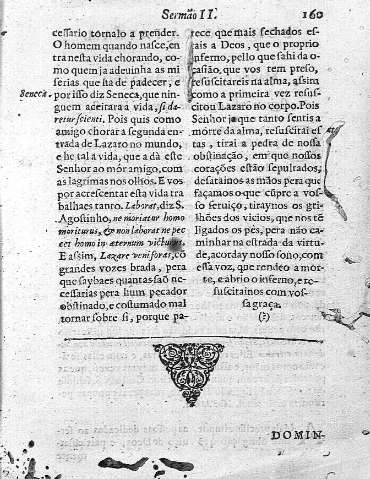 Sermão II. 160
cessario tornalo a prender.
O homem quando nasce, en
tra nesta vida chorando, co-
mo quem ja adeuinha as mi
serias que ha de padecer, e
Seneca. por isso diz Seneca, que nin-
guem aceitara a vida, si da-
retur scienti. Pois quis como
amigo chorar a segunda en-
trada de Lazaro no mundo,
e he tal a vida, que a dà este
Senhor ao mór amigo, com
as lagrimas nos olhos. E vos
por acrescentar esta vida tra
balhaes tanto. Laborat, diz S.
Agostinho, ne moriatur homo
moriturus, & non laborat ne pec
cet homo in æternum victurus.
E assim, Lazare veni foras, cõ
grandes vozes brada, pera
que saybaes quantas saõ ne-
cessarias pera hum pecador
obstinado, e costumado mal
tornar sobre si, porque pa-
rece que mais fechados es-
tais a Deos, que o proprio
inferno, pello que sahi da o-
casião, que vos tem preso,
resuscitareis na alma, assim
como a primeira vez resus-
citou Lazaro no corpo. Pois
Senhor ja que tanto sentis a
mórte da alma, resuscitai es-
tas, tirai a pedra de nossa
obstinação, em que nossos
corações estão sepultados,
desatainos as mãos pera que
façamos o que cũpre a vos-
so seruiço, tiraynos os gri-
lhões dos vicios, que nos tẽ
ligados os pés, pera não ca-
minhar na estrada da virtu-
de, acorday nosso sono, com
essa voz, que rendeo a mor-
te, e abrio o inferno, e re-
suscitainos com vos-
sa graça.
(?)
DOMIN-